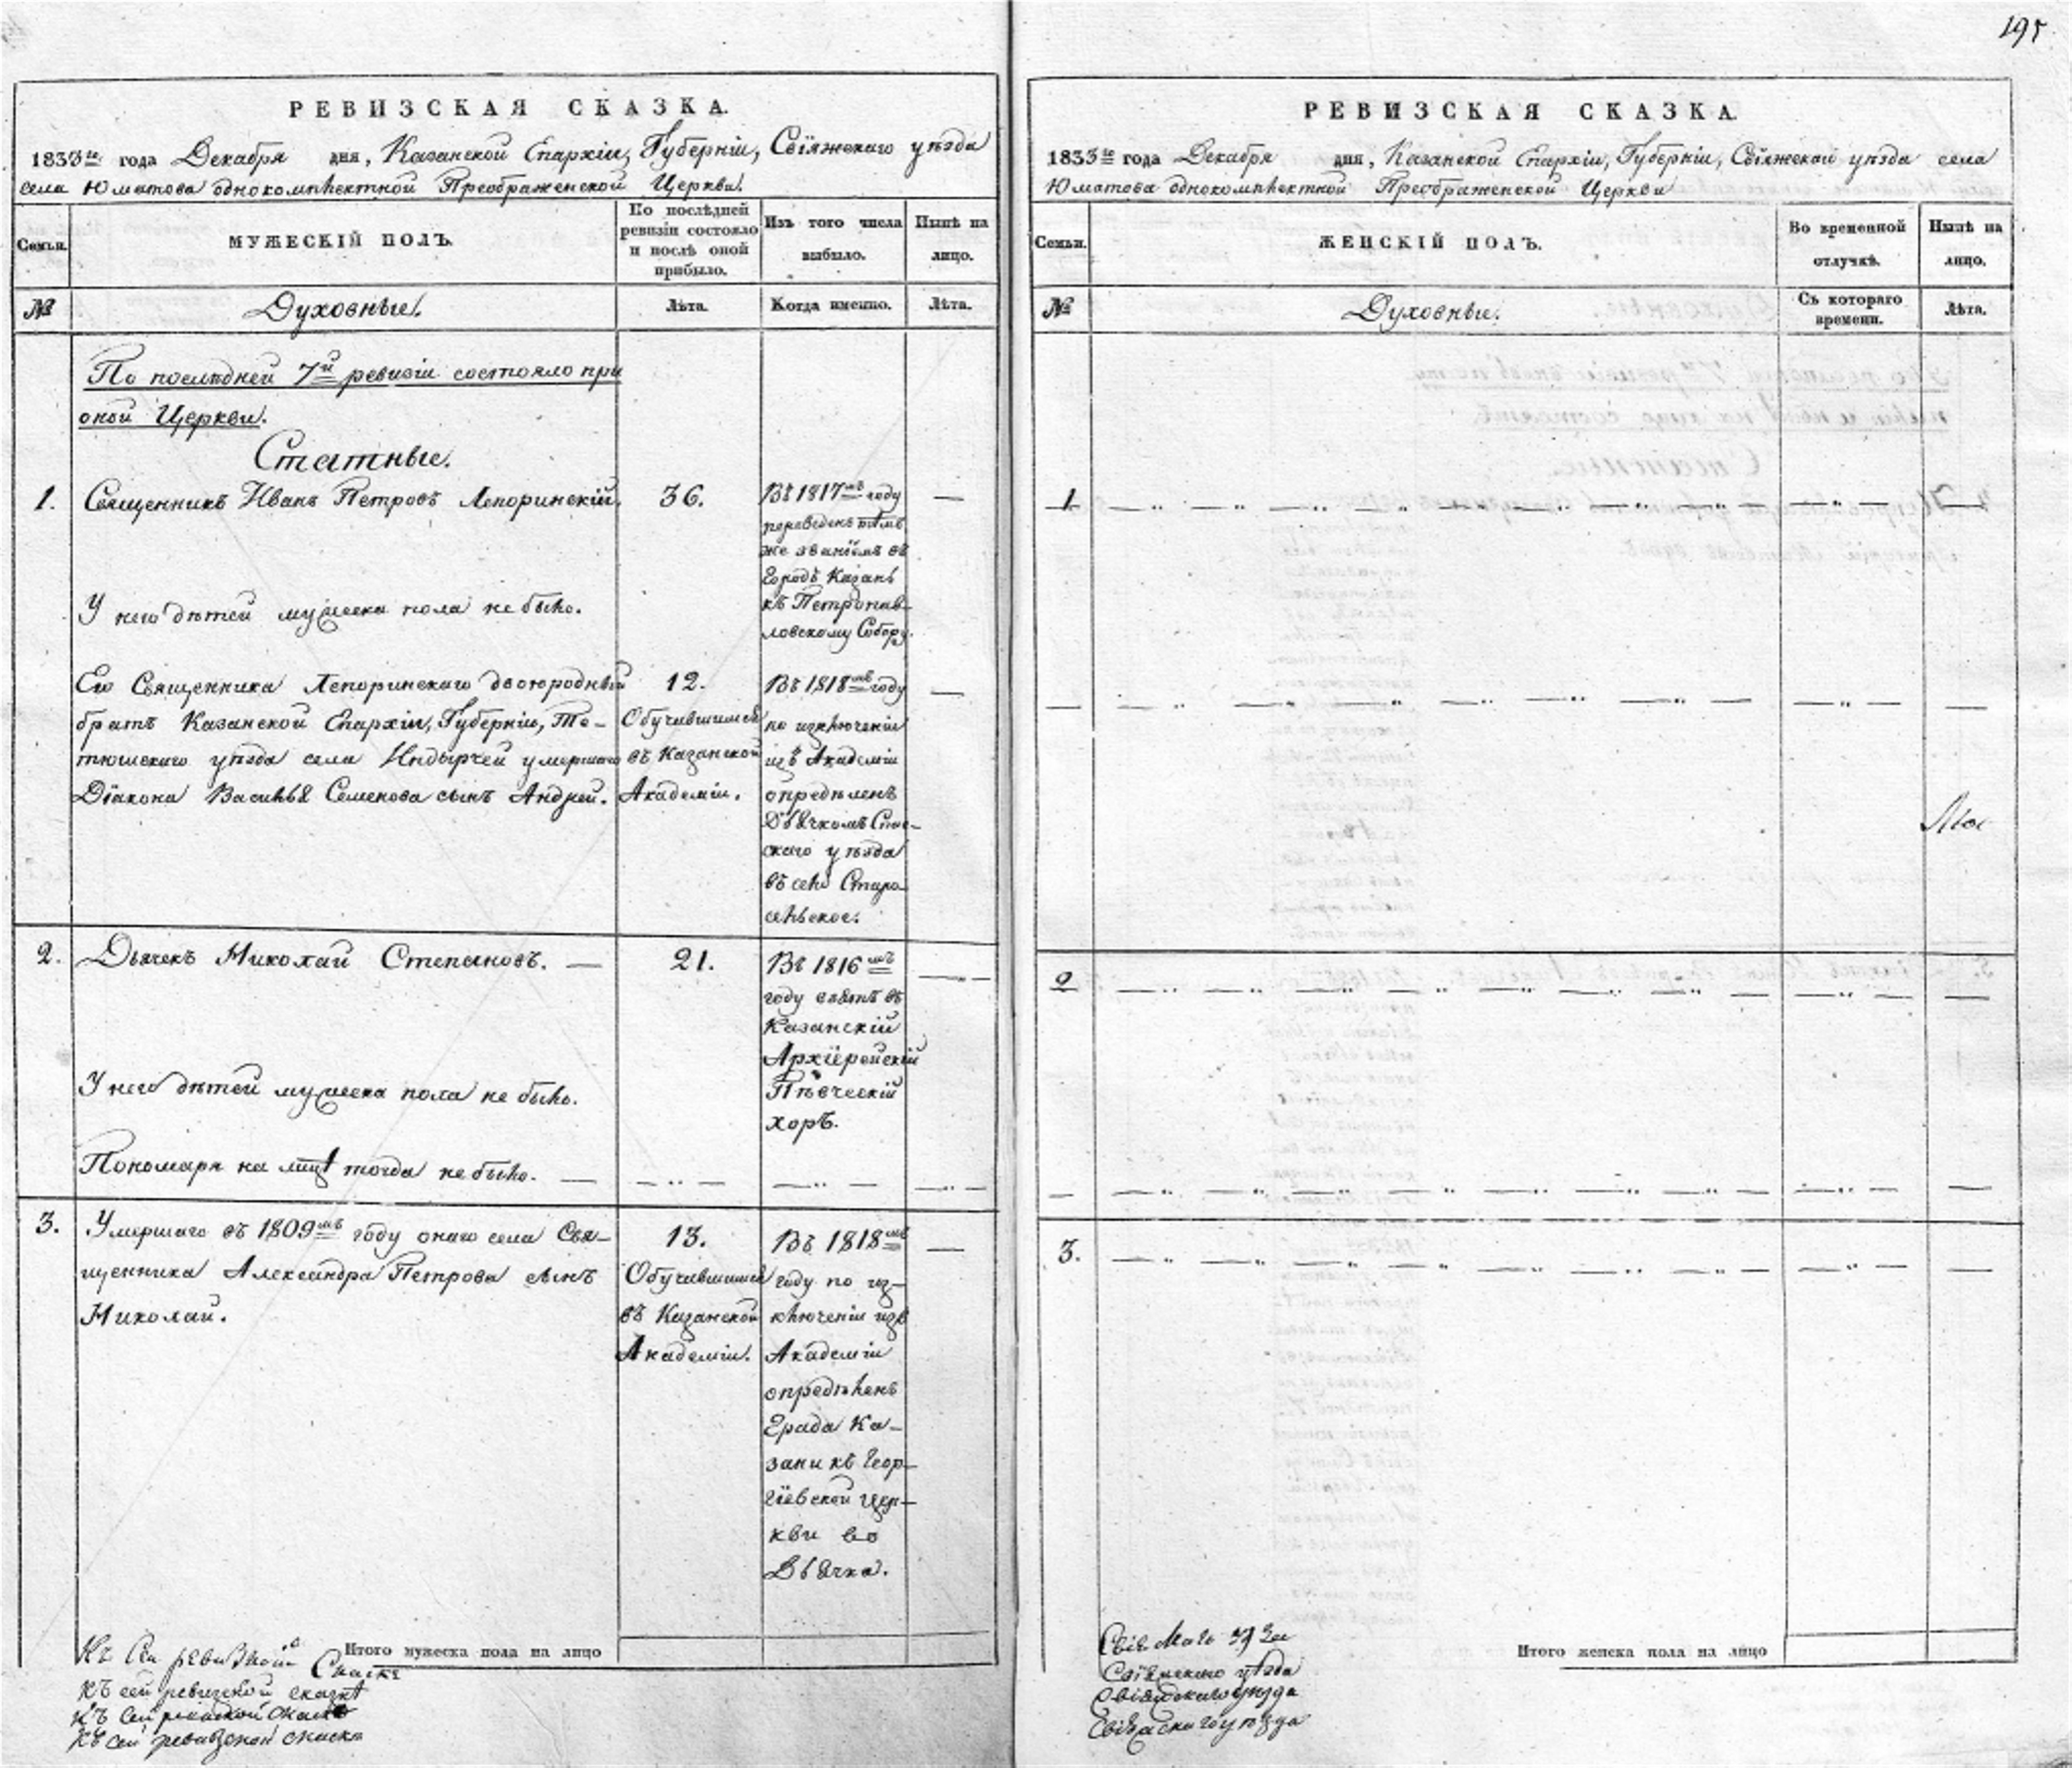 195
РЕВИЗСКАЯ СКАЗКА.
1833го года Декабря дня, Казанской Епархіи, Губерніи, Свіяжскаго уѣзда
села Юматова однокомплектной Преображенской Церкви.
Семьи.
МУЖЕСКІЙ ПОЛЪ.
По послѣдней
ревизіи состояло
и послѣ оной
прибыло.
Изъ того числа
выбыло.
Нынѣ на
лицо.
№
Духовные.
Лѣта.
Когда именно.
Лѣта.
По послѣдней 7й ревизіи состояло при
оной Церкви.
Статные.
1.
Священникъ Иванъ Петровъ Лепоринскій.
36.
Въ 1817мъ году
переведенъ тѣмъ
же званіемъ въ
Городъ Казань
къ Петропав-
ловскому Собору.
—
У него дѣтей мужеска пола не было.
Его Священника Лепоринскаго двоюродный
братъ Казанской Епархіи, Губерніи, Те-
тюшскаго уѣзда села Индырчей умершаго
Діакона Василья Семенова сынъ Андрей.
12.
Обучавшимся
въ Казанской
Академіи.
Въ 1818мъ году
по изключеніи
изъ Академіи
опредѣленъ
Дьячкомъ Спас-
скаго уѣзда
въ село Старо-
сельское.
—
2.
Дьячекъ Николай Степановъ. —
21.
Въ 1816мъ
году взятъ въ
Казанскій
Архіерейскій
Пѣвческій
хоръ.
—
У него дѣтей мужеска пола не было.
Пономаря на лицѣ тогда не было. —
3.
Умершаго въ 1809мъ году онаго села Свя-
щенника Александра Петрова сынъ
Николай.
13.
Обучавшимся
въ Казанской
Академіи.
Въ 1818мъ
году по из-
ключеніи изъ
Академіи
опредѣленъ
Града Ка-
зани къ Геор-
гіевской Цер-
кви во
Дьячка.
—
Итого мужеска пола на лицо
Къ Сей ревизкой Скаске
къ сей ревизской сказкѣ
къ сей ревизской скаске
РЕВИЗСКАЯ СКАЗКА.
1833го года Декабря дня, Казанской Епархіи, Губерніи, Свіяжской уѣзда села
Юматова однокомплектной Преображенской Церкви
Семьи.
ЖЕНСКІЙ ПОЛЪ.
Во временной
отлучкѣ.
Нынѣ на
лицо.
№
Духовные.
Съ котораго
времени.
Лѣта.
1
2
3.
Итого женска пола на лицо
Свіяжскаго уѣзда
Свіяжскаго уѣзда
Свіяжскаго уѣзда